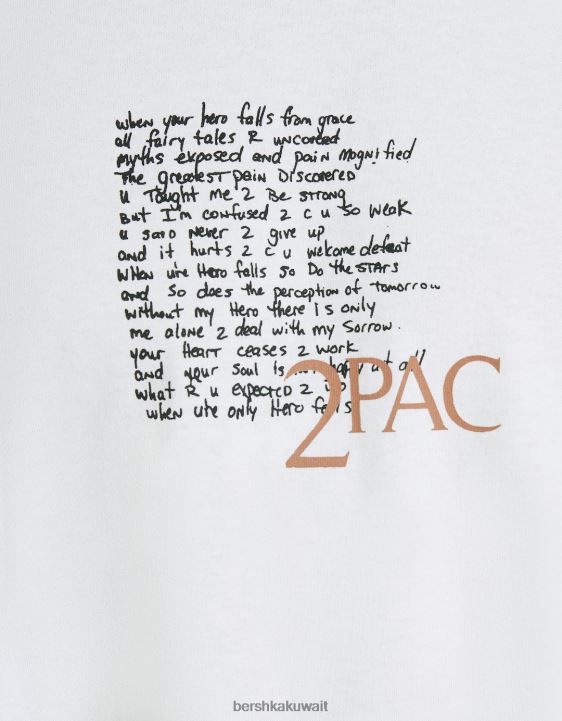 when your hero falls from grace
all fairy tales R uncovered
myths exposed and pain magnified
The greatest pain Discovered
u Taught me 2 Be strong
But I'm confused 2 c u so weak
u said never 2 give up
and it hurts 2 c u welcome defeat
when ure Hero falls so Do the STARS
and so does the perception of tomorrow
without my Hero there is only
me alone 2 deal with my Sorrow.
your Heart ceases 2 work
and your soul is not happy at all
what R u expected 2 do
when ure only Hero falls
2PAC
bershkakuwait